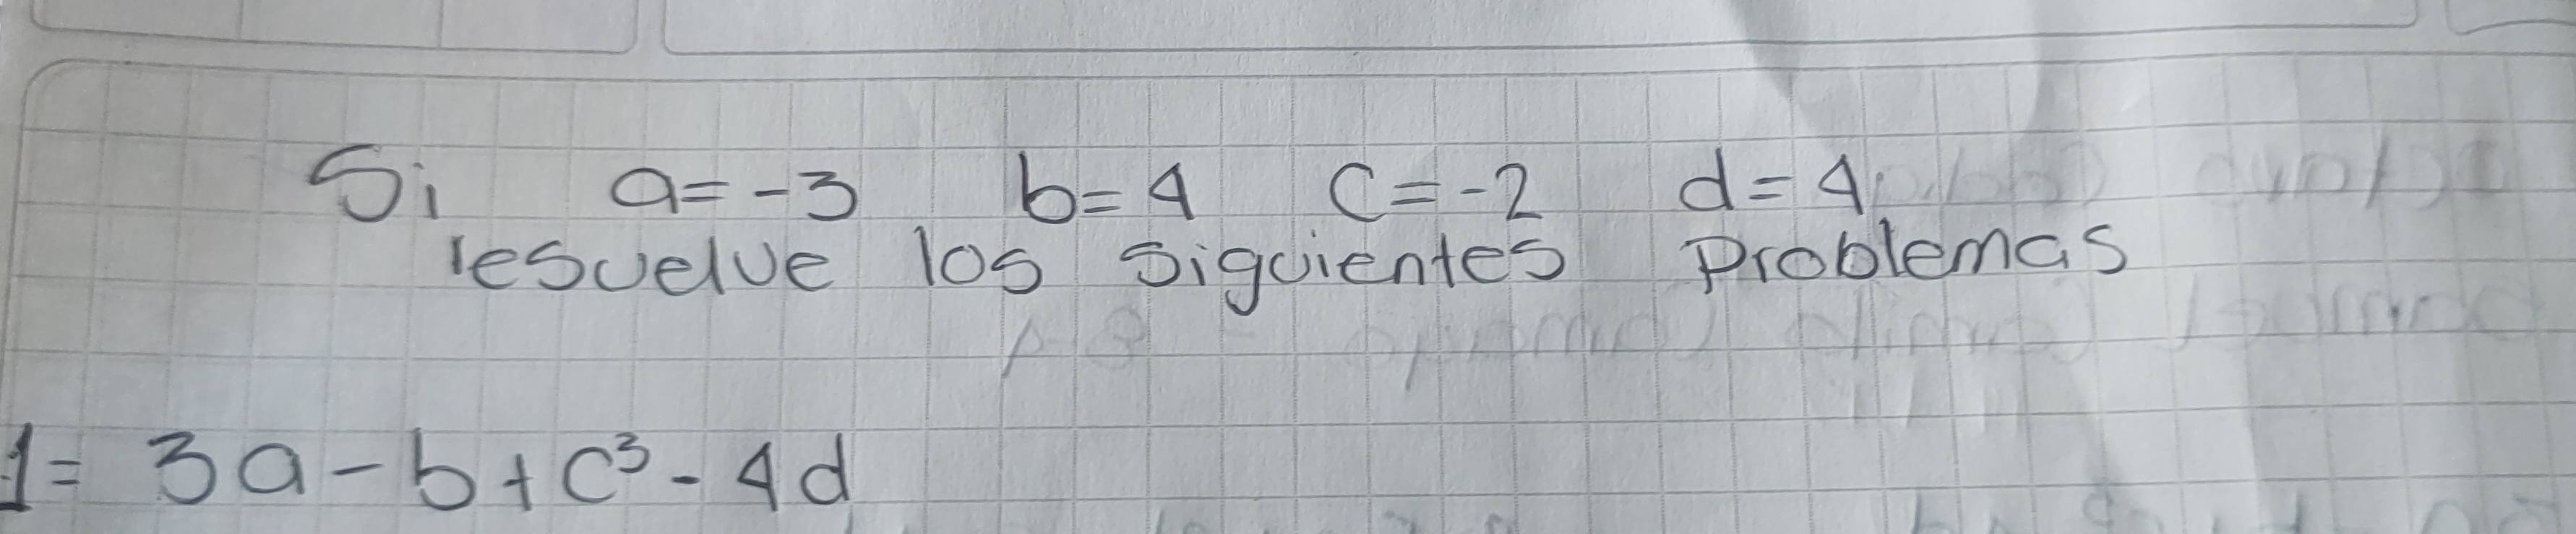 Si a=-3 b=4 c=-2 d=4
resuelve los siguientes problemas
1= 3a-b+c³-4d